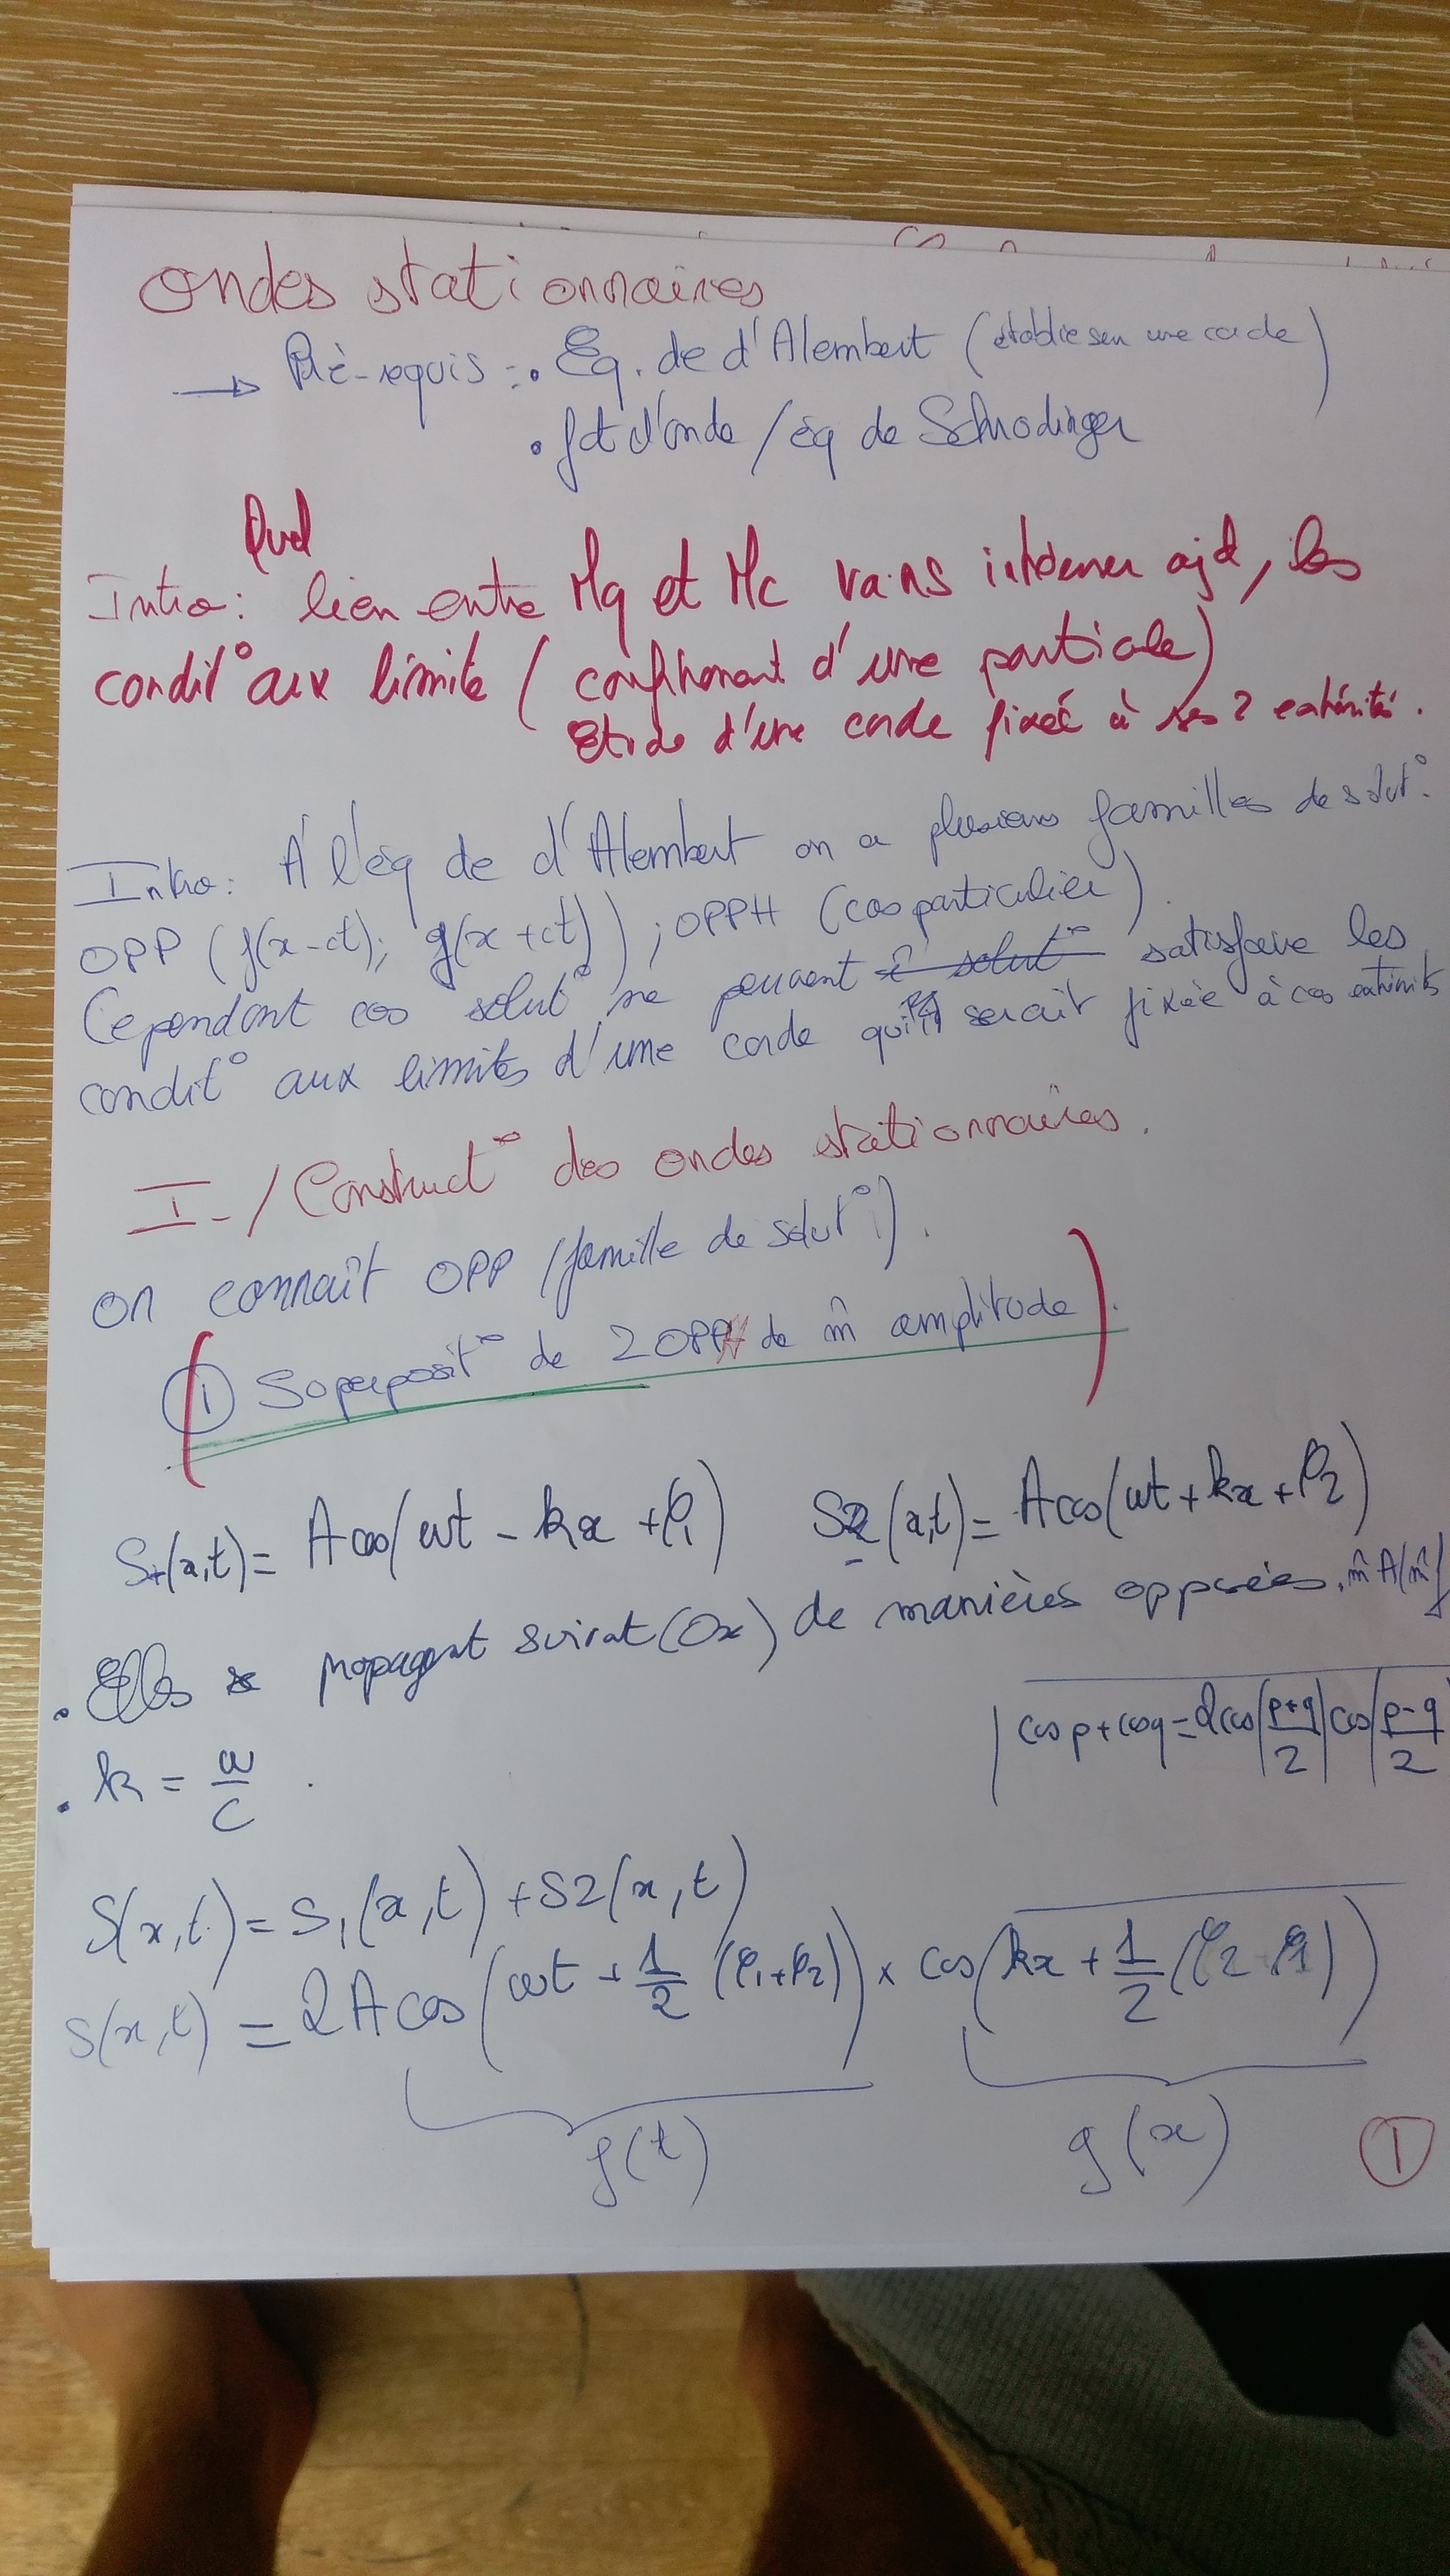 Ondes stationnaires
→ Pré-requis : • Eq. de d'Alembert (établie sur une corde)
• fct d'onde / éq de Schrodinger
Quel
Intro : lien entre Mq et Mc va ns intéresser ajd, les
condit° aux limite ( confinement d'une particule)
Etude d'une corde fixée à ses 2 extrémités.
Intro : A l'éq de d'Alembert on a plusieurs familles de solut°.
OPP (f(x-ct); g(x+ct)) ; OPPH (cas particulier).
Cependant ces solut° ne peuvent satisfaire les
condit° aux limites d'une corde qui serait fixée à ces extrémités
I-/ Construct° des ondes stationnaires.
On connaît OPP (famille de solut°).
(① Superposit° de 2 OPPH de m̂ amplitude).
S₁(x,t) = A cos(ωt - kx + φ₁) S₂(x,t) = A cos(ωt + kx + φ₂)
• Elles se propagent suivat (Ox) de manières opposées, m̂ A(m̂ f
• k = ω/c .
cos p + cos q = 2 cos(p+q/2) cos(p-q/2
S(x,t) = S₁(x,t) + S2(x,t)
S(x,t) = 2A cos(ωt + 1/2 (φ₁+φ₂)) × cos(kx + 1/2 (φ₂-φ₁))
f(t) g(x)
①